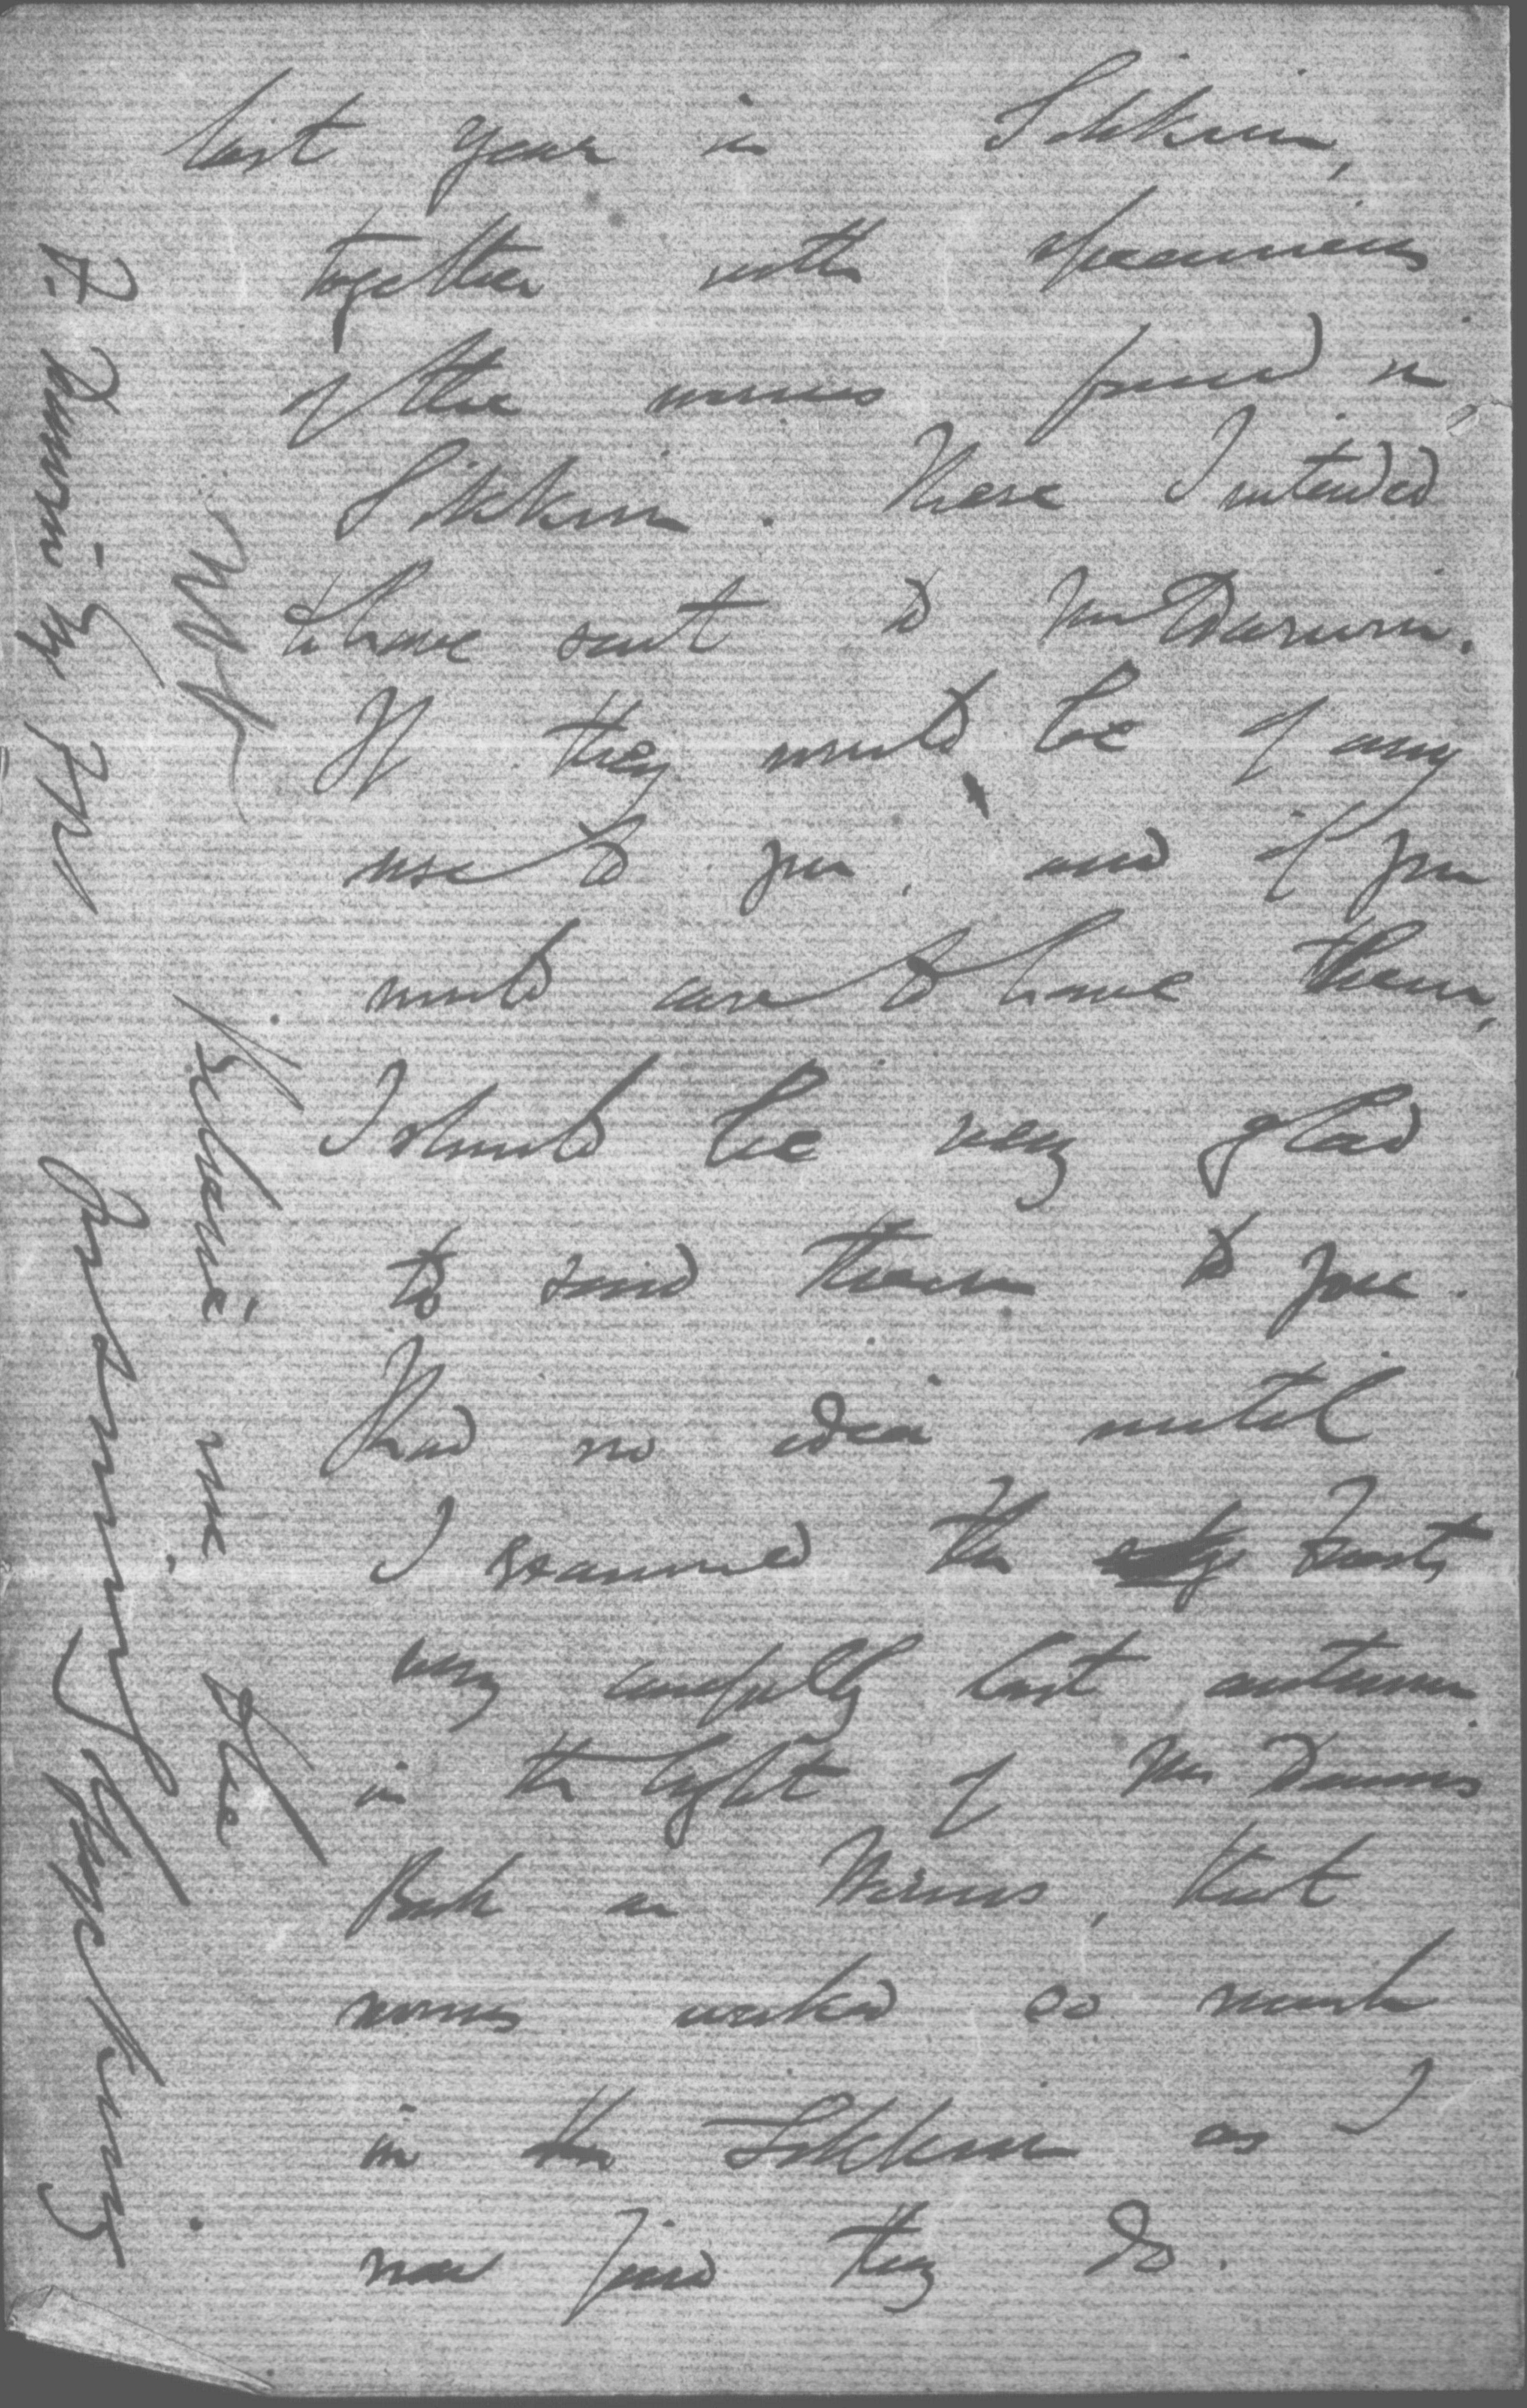 last year in Sikkim,
together with specimens
of the worms found in
Sikkim. These I intended
to have sent to Mr Darwin.
If they would be of any
use to you, and if you
would care to have them,
I should be very glad
to send them to you.
I had no idea until
I examined the Forests
very carefully last autumn
in the light of Mr Darwins
Book on Worms, that
worms worked so much
in the Sikkim as I
now find they do.
Believe me
Yours